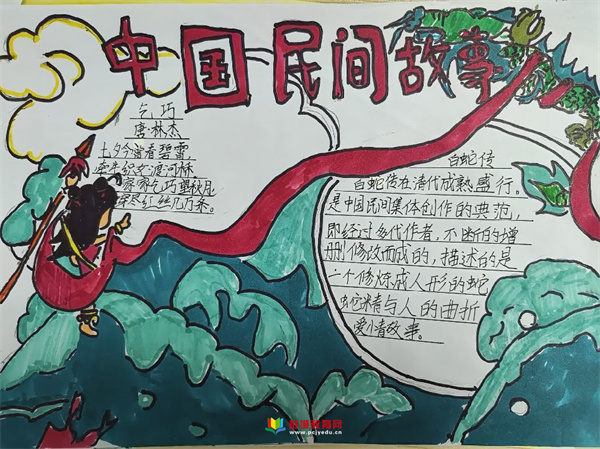 中国民间故事
乞巧
唐·林杰
七夕今看碧霄,
牵牛织女渡河桥
家家乞巧望秋月
穿尽红丝几万条。
白蛇传
白蛇传在清代成熟盛行。
是中国民间集体创作的典范,
即经过多代作者,不断的增
删修改而成的,描述的是
一个修炼成人形的蛇
蛇精与人的曲折
爱情故事。
教育网
www.pcjyedu.cn